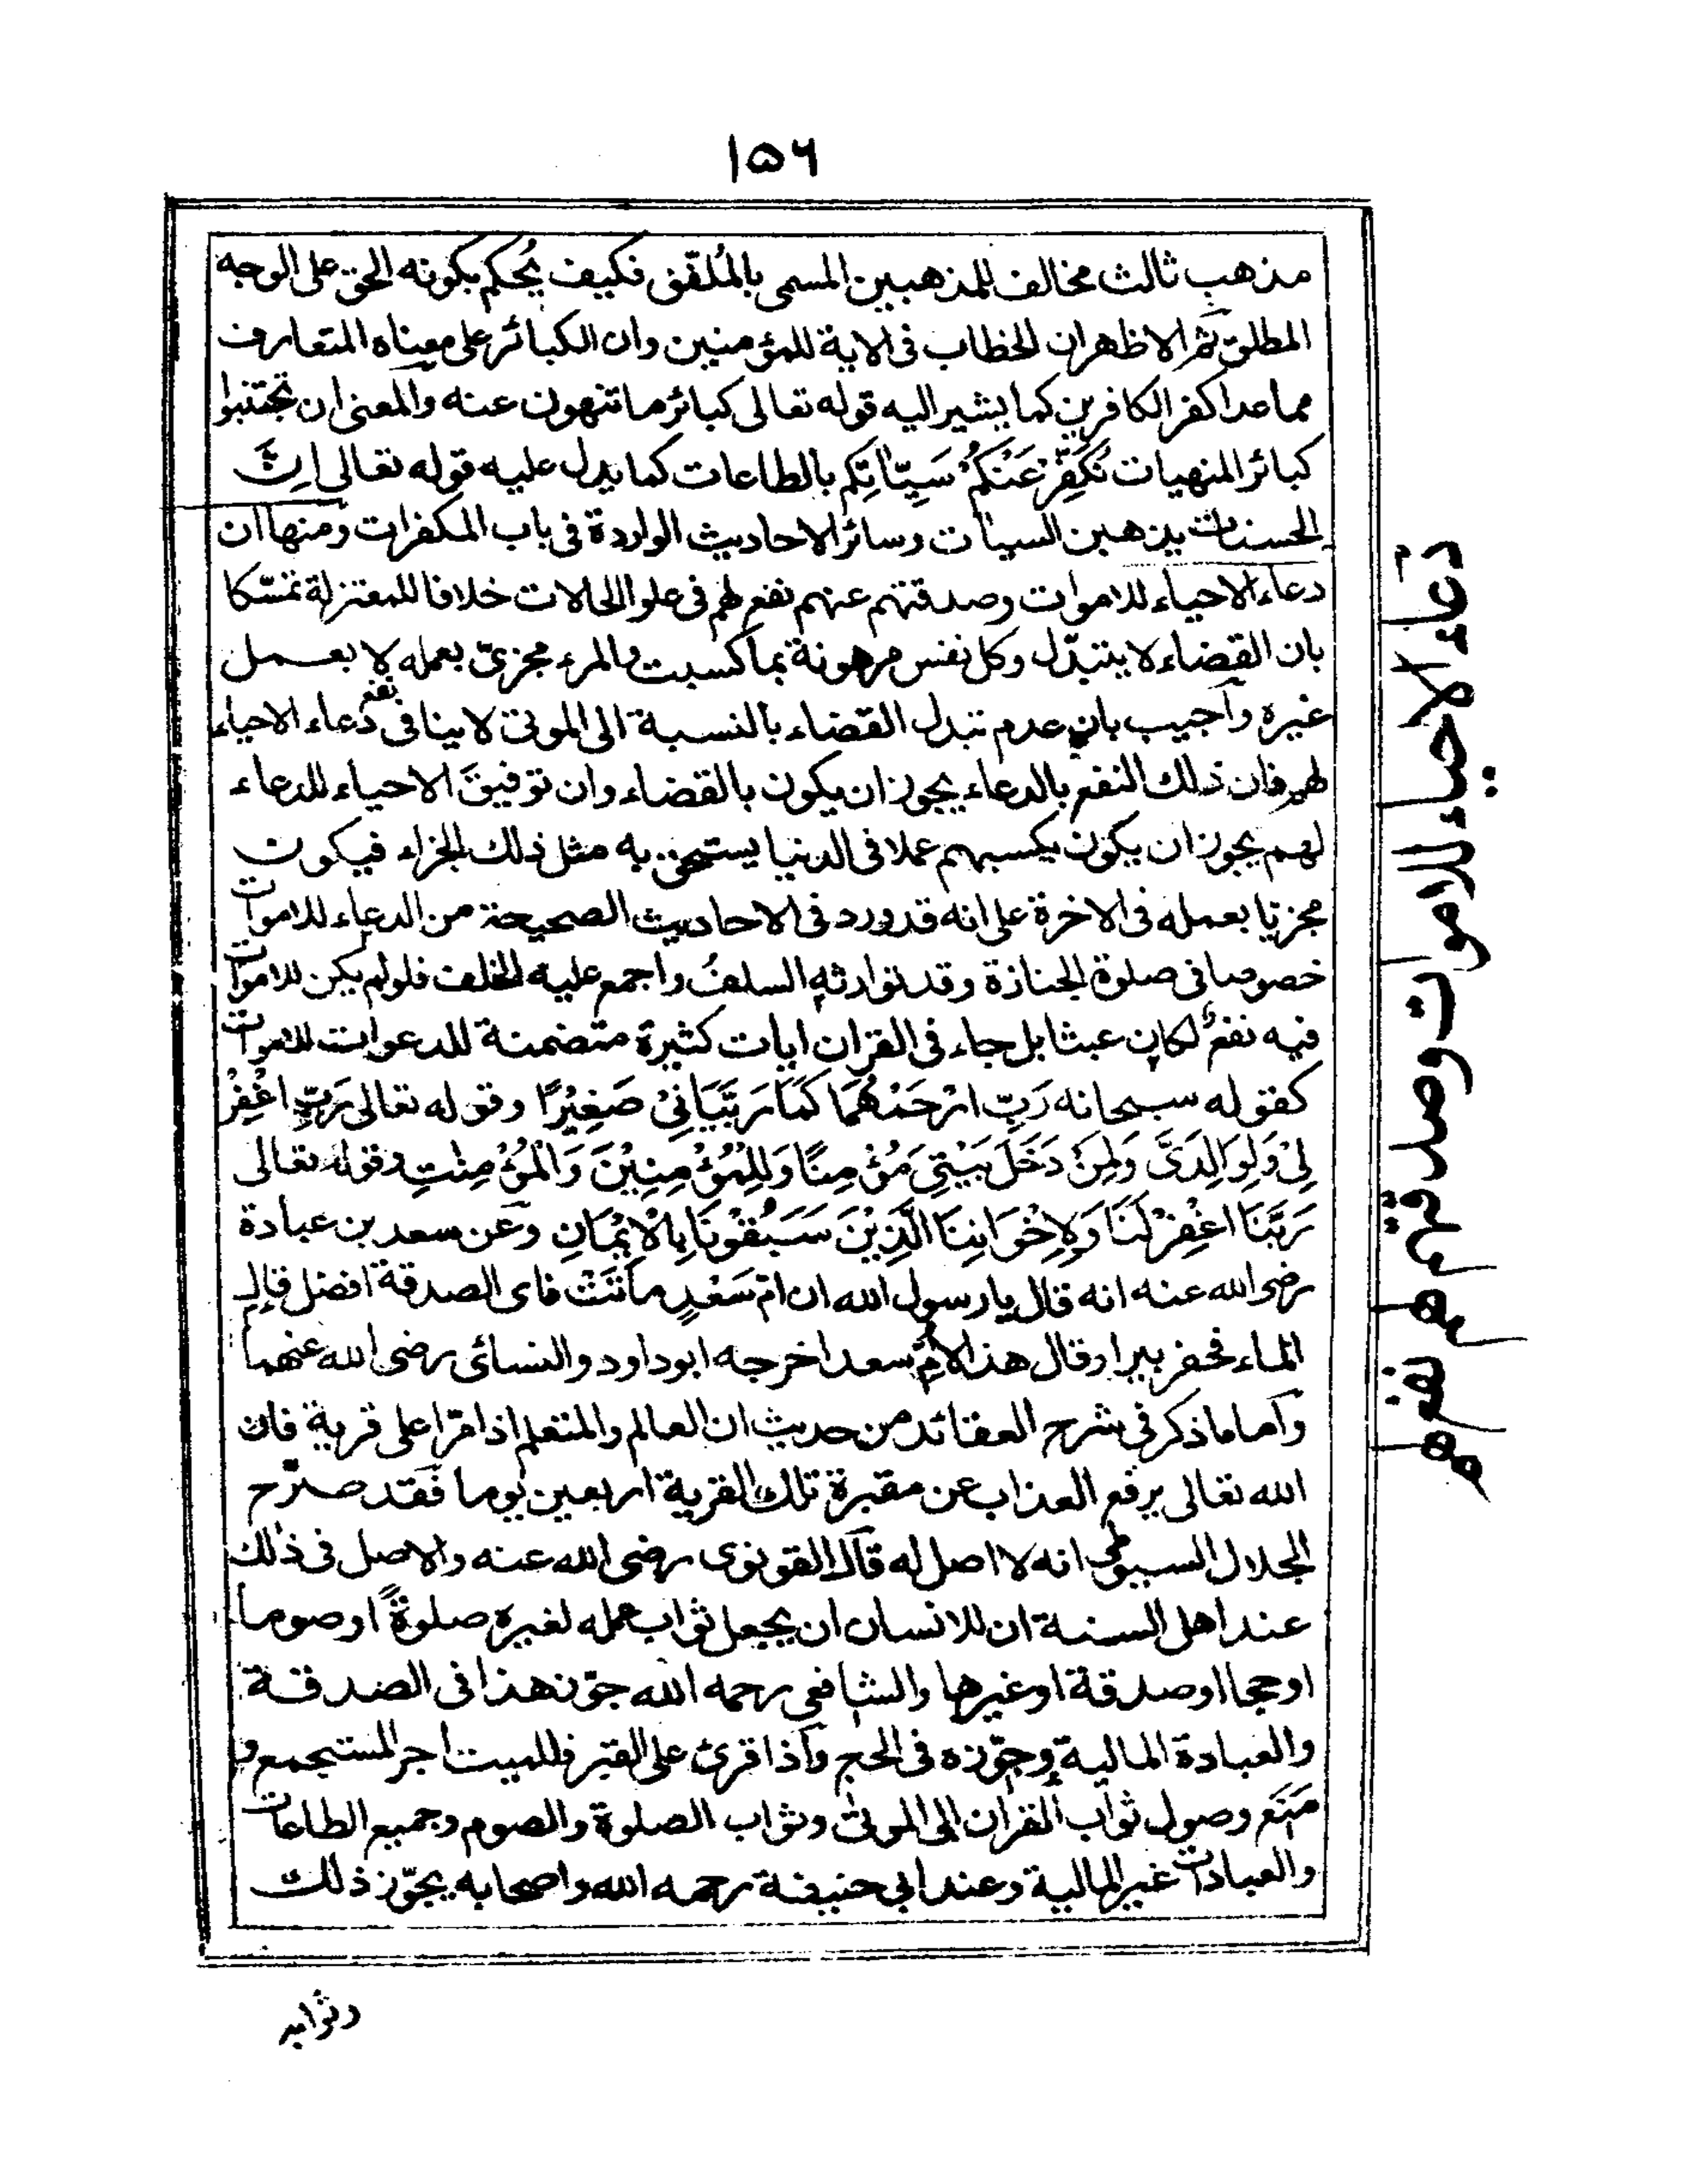 ١٥٦
مذهب ثالث مخالف للمذهبين المسمى بالمُلفّق فكيف يُحكم بكونه الحق على الوجه
المطلق ثم الاظهر ان الخطاب فى الاية للمؤمنين وان الكبائر على معناه المتعارف
مما عدا كفر الكافرين كما يشير اليه قوله تعالى كبائر ما تنهون عنه والمعنى ان تجتنبوا
كبائر المنهيات نُكَفِّرْ عَنْكُمْ سَيِّاٰتِكُم بالطاعات كما يدل عليه قوله تعالى اِنَّ
الحسنات يذهبن السيأت وسائر الاحاديث الواردة فى باب المكفرات ومنها ان
دعاء الاحياء للاموات وصدقتهم عنهم نفع لهم فى علو الحالات خلافا للمعتزلة تمسّكا
بان القضاء لا يتبدّل وكل نفس مرهونة بما كسبت والمرء مجزىّ بعمله لا بعمل
غيره واجيب بان عدم تبدل القضاء بالنسبة الى الموتى لا ينافى نفع دعاء الاحياء
لهم فان ذلك النفع بالدعاء يجوز ان يكون بالقضاء وان توفيقَ الاحياء للدعاء
لهم يجوز ان يكون يكسبهم عملا فى الدنيا يستحق به مثل ذلك الجزاء فيكون
مجزيا بعمله فى الاخرة على انه قد ورد فى الاحاديث الصحيحة من الدعاء للاموات
خصوصا فى صلوة الجنازة وقد توارثه السلفُ واجمع عليه الخلف فلو لم يكن للاموات
فيه نفعٌ لكان عبثا بل جاء فى القران ايات كثيرة متضمنة للدعوات للاموات
كقوله سبحانه رَبِّ ارْحَمْهُمَا كَمَا رَبَّيَانِىْ صَغِيْرًا وقوله تعالى رَبِّ اغْفِرْ
لِىْ وَلِوَالِدَىَّ وَلِمَنْ دَخَلَ بَيْتِىَ مُؤْمِنًا وَلِلْمُؤْمِنِيْنَ وَالْمُؤْمِنٰتِ وقوله تعالى
رَبَّنَا اغْفِرْ لَنَا وَلِاِخْوَانِنَا الَّذِيْنَ سَبَقُوْنَا بِالْاِيْمَانِ وعن سعد بن عبادة
رضى الله عنه انه قال يا رسول الله ان امّ سَعْدٍ ماتَتْ فاى الصدقة افضل قال
الماء فحفر بيرا وقال هذا لامّ سعد اخرجه ابو داود والنسائى رضى الله عنهما
واما ما ذكر فى شرح العقائد من حديث ان العالم والمتعلم اذا مرّا على قرية فان
الله تعالى يرفع العذاب عن مقبرة تلك القرية اربعين يوما فقد صرّح
الجلال السيوطى انه لا اصل له قال القونوى رضى الله عنه والاصل فى ذلك
عند اهل السنة ان للانسان ان يجعل ثواب عمله لغيره صلوةً او صوما
او حجا او صدقة او غيرها والشافعى رحمه الله جوّز هذا فى الصدقة
والعبادة المالية وجوّزه فى الحج واذا قرئ على القبر فللميت اجر المستجمع و
مَنَع وصول ثواب القران الى الموتى وثواب الصلوة والصوم وجميع الطاعات
والعبادات غير المالية وعند ابى حنيفة رحمه الله واصحابه يجوّز ذلك
وثوابه
دعاء الاحياء للاموات وصدقتهم نفع لهم